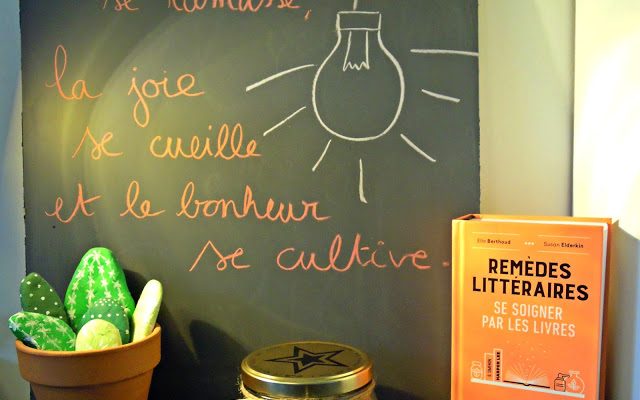 se ramasse,
la joie
se cueille
et le bonheur
se cultive.
Ella Berthoud
Susan Elderkin
REMÈDES
LITTÉRAIRES
SE SOIGNER
PAR LES LIVRES
HARPER LEE